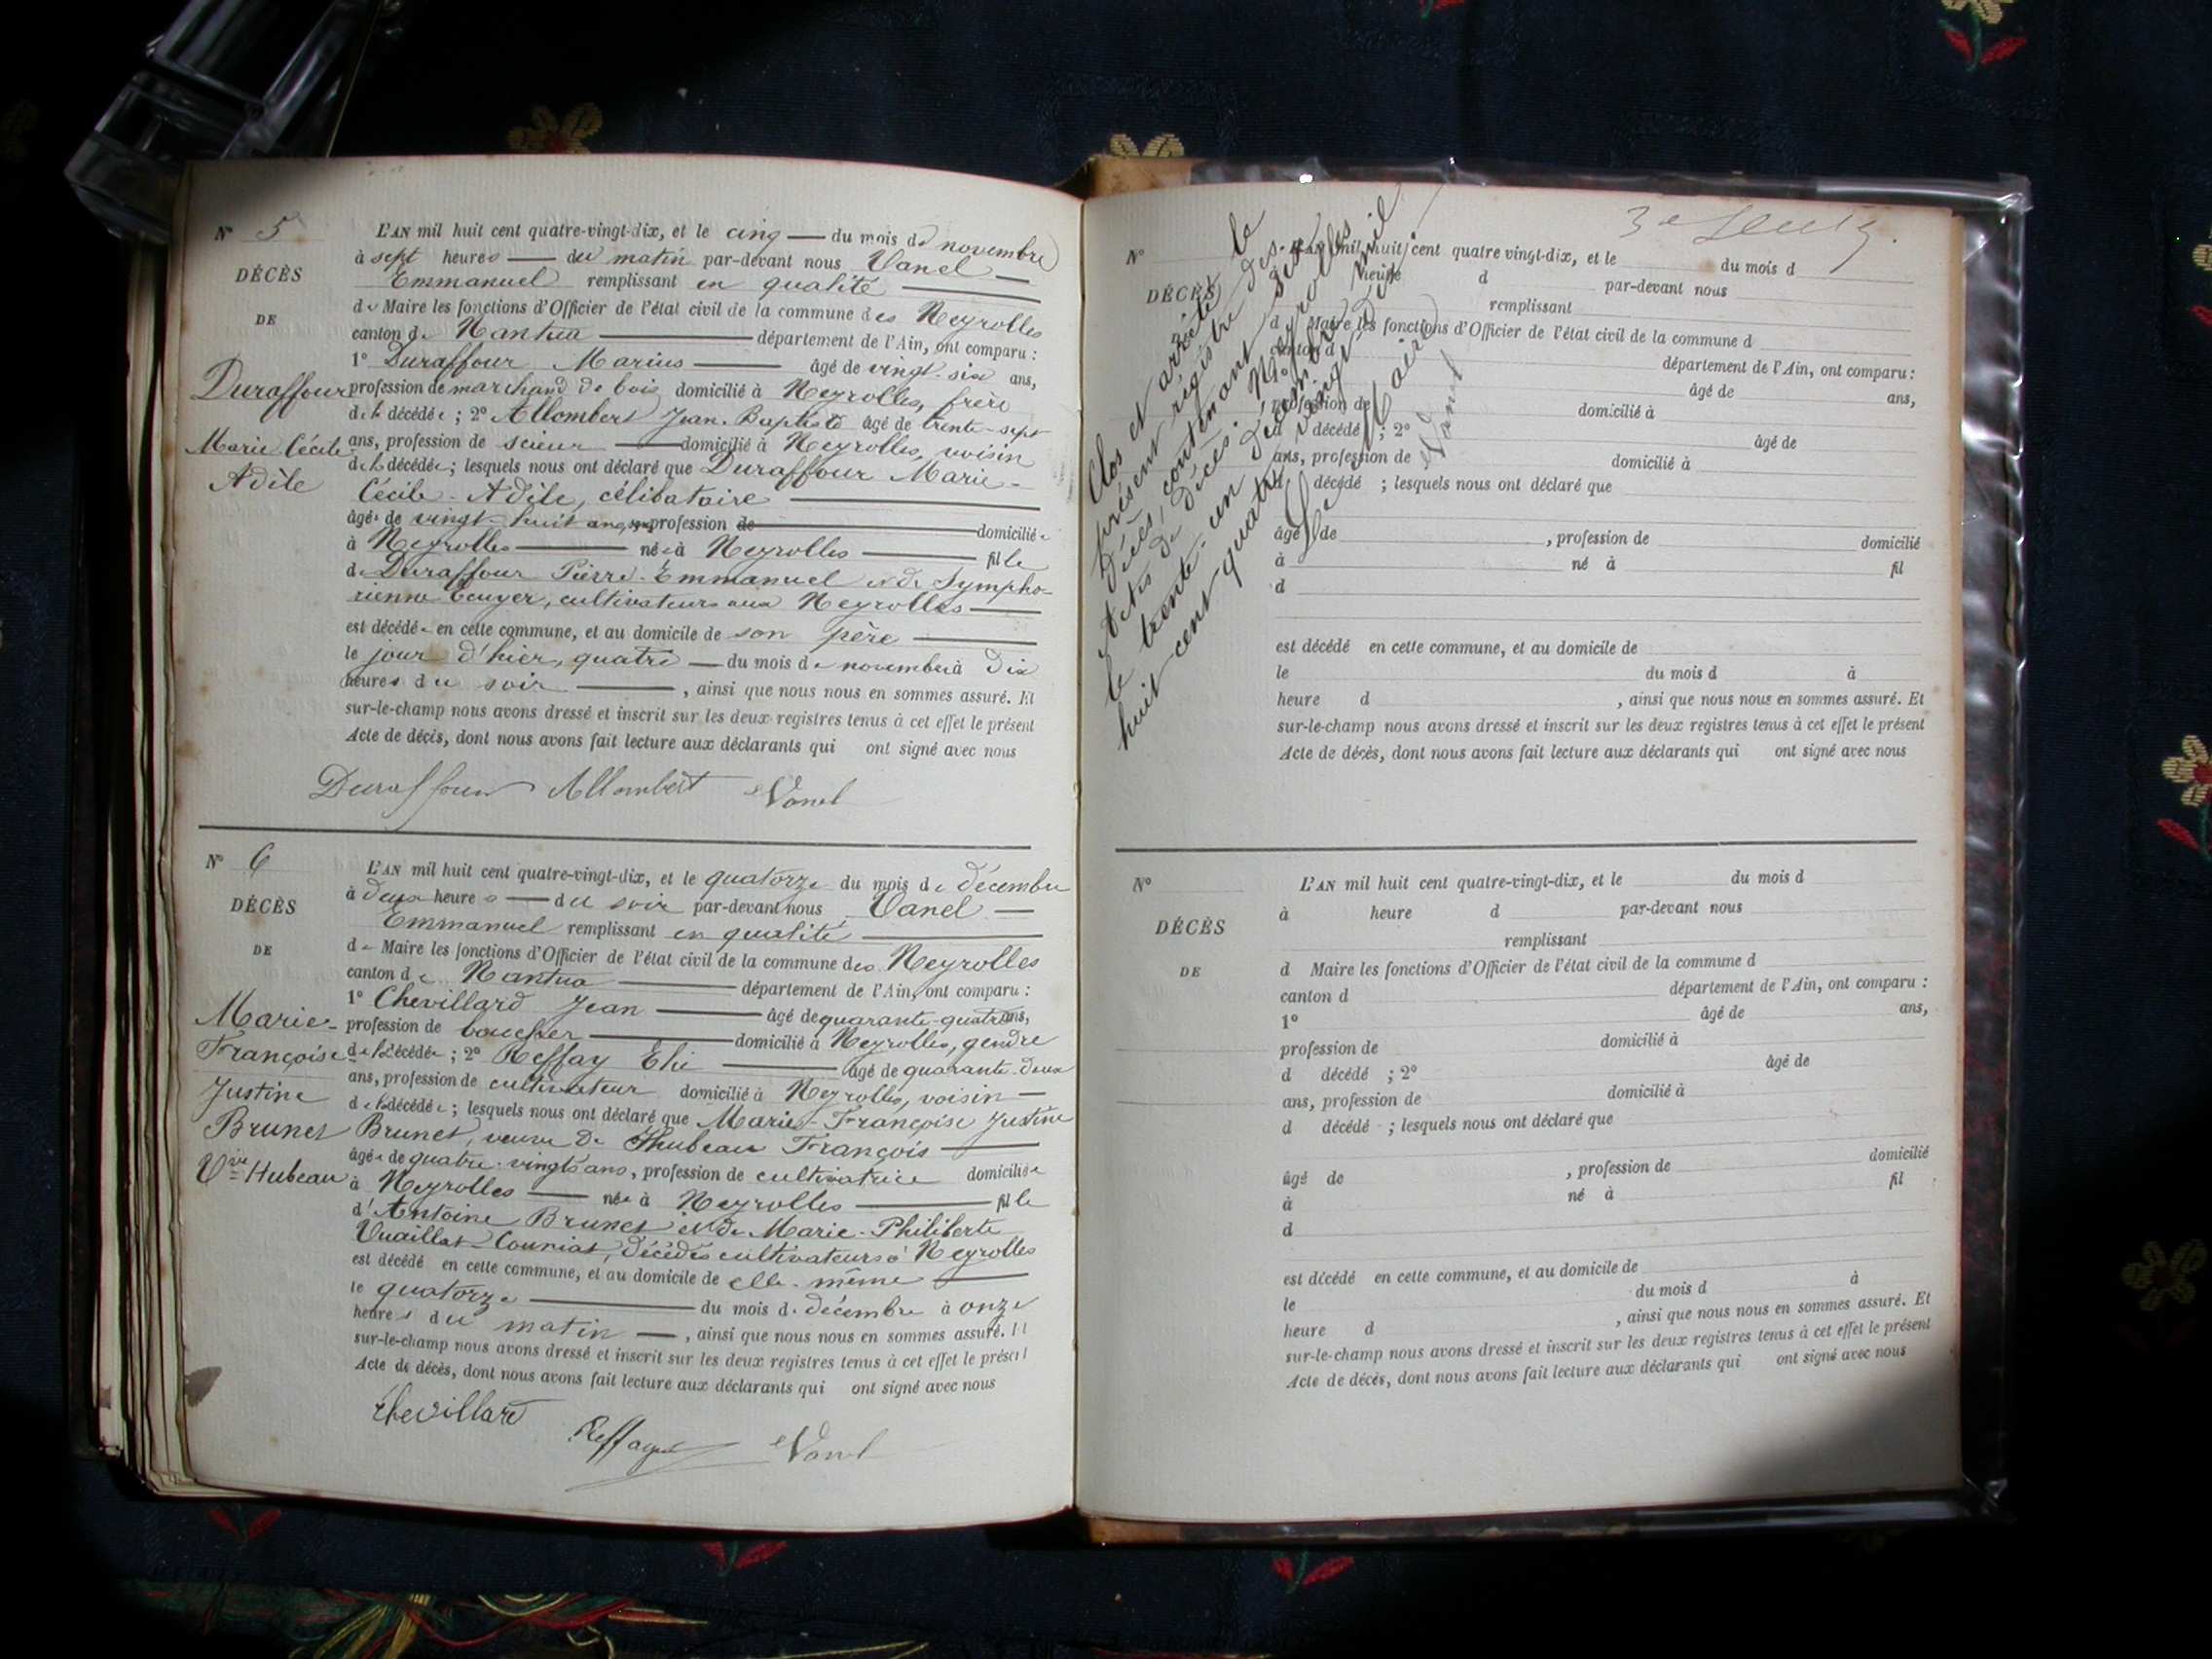 N° 5
DÉCÈS
DE
Duraffour
Marie Cécile
Adèle
L'AN mil huit cent quatre-vingt-dix, et le cinq du mois de novembre
à sept heures du matin par-devant nous Vanel
Emmanuel remplissant en qualité
de Maire les fonctions d'Officier de l'état civil de la commune des Neyrolles
canton de Nantua département de l'Ain, ont comparu :
1° Duraffour Marius âgé de vingt-six ans,
profession de marchand de bois domicilié à Neyrolles, frère
de la décédée ; 2° Allombert Jean-Baptiste âgé de trente-sept
ans, profession de scieur domicilié à Neyrolles, voisin
de la décédée ; lesquels nous ont déclaré que Duraffour Marie-
Cécile-Adèle, célibataire
âgée de vingt-huit ans, profession de domiciliée
à Neyrolles née à Neyrolles fille
de Duraffour Pierre-Emmanuel et de Sympho-
rienne Ecuyer, cultivateurs aux Neyrolles
est décédée en cette commune, et au domicile de son père
le jour d'hier, quatre du mois de novembre à dix
heures du soir , ainsi que nous nous en sommes assuré. Et
sur-le-champ nous avons dressé et inscrit sur les deux registres tenus à cet effet le présent
Acte de décès, dont nous avons fait lecture aux déclarants qui ont signé avec nous
Duraffour Allombert Vanel
N° 6
DÉCÈS
DE
Marie-
Françoise
Justine
Brunet
Vve Hubeau
L'AN mil huit cent quatre-vingt-dix, et le quatorze du mois de décembre
à deux heures du soir par-devant nous Vanel
Emmanuel remplissant en qualité
de Maire les fonctions d'Officier de l'état civil de la commune des Neyrolles
canton de Nantua département de l'Ain, ont comparu :
1° Chevillard Jean âgé de quarante-quatre ans,
profession de boucher domicilié à Neyrolles, gendre
de la décédée ; 2° Reffay Elie âgé de quarante-deux
ans, profession de cultivateur domicilié à Neyrolles, voisin
de la décédée ; lesquels nous ont déclaré que Marie-Françoise Justine
Brunet, veuve de Thubeau François
âgée de quatre-vingts ans, profession de cultivatrice domiciliée
à Neyrolles née à Neyrolles fille
d'Antoine Brunet et de Marie-Philiberte
Vuaillat-Couriat, décédés cultivateurs à Neyrolles
est décédé en cette commune, et au domicile de elle-même
le quatorze du mois de décembre à onze
heures du matin , ainsi que nous nous en sommes assuré. Et
sur-le-champ nous avons dressé et inscrit sur les deux registres tenus à cet effet le présent
Acte de décès, dont nous avons fait lecture aux déclarants qui ont signé avec nous
Chevillard Reffay Vanel
Clos et arrêté le
présent registre des
décès, contenant six
Actes de décès. Neyrolles
le trente-un décembre mil
huit cent quatre-vingt-dix
Le Maire
Vanel
3e
N°
DÉCÈS
L'AN mil huit cent quatre vingt-dix, et le du mois d
heure d par-devant nous
remplissant
d Maire les fonctions d'Officier de l'état civil de la commune d
canton d département de l'Ain, ont comparu :
1° âgé de ans,
profession de domicilié à
d décédé ; 2° âgé de
ans, profession de domicilié à
d décédé ; lesquels nous ont déclaré que
âgé de , profession de domicilié
à né à fil
d
est décédé en cette commune, et au domicile de
le du mois d à
heure d , ainsi que nous nous en sommes assuré. Et
sur-le-champ nous avons dressé et inscrit sur les deux registres tenus à cet effet le présent
Acte de décès, dont nous avons fait lecture aux déclarants qui ont signé avec nous
N°
DÉCÈS
DE
L'AN mil huit cent quatre-vingt-dix, et le du mois d
à heure d par-devant nous
remplissant
d Maire les fonctions d'Officier de l'état civil de la commune d
canton d département de l'Ain, ont comparu :
1° âgé de ans,
profession de domicilié à
d décédé ; 2° âgé de
ans, profession de domicilié à
d décédé ; lesquels nous ont déclaré que
âgé de , profession de domicilié
à né à fil
d
est décédé en cette commune, et au domicile de
le du mois d à
heure d , ainsi que nous nous en sommes assuré. Et
sur-le-champ nous avons dressé et inscrit sur les deux registres tenus à cet effet le présent
Acte de décès, dont nous avons fait lecture aux déclarants qui ont signé avec nous